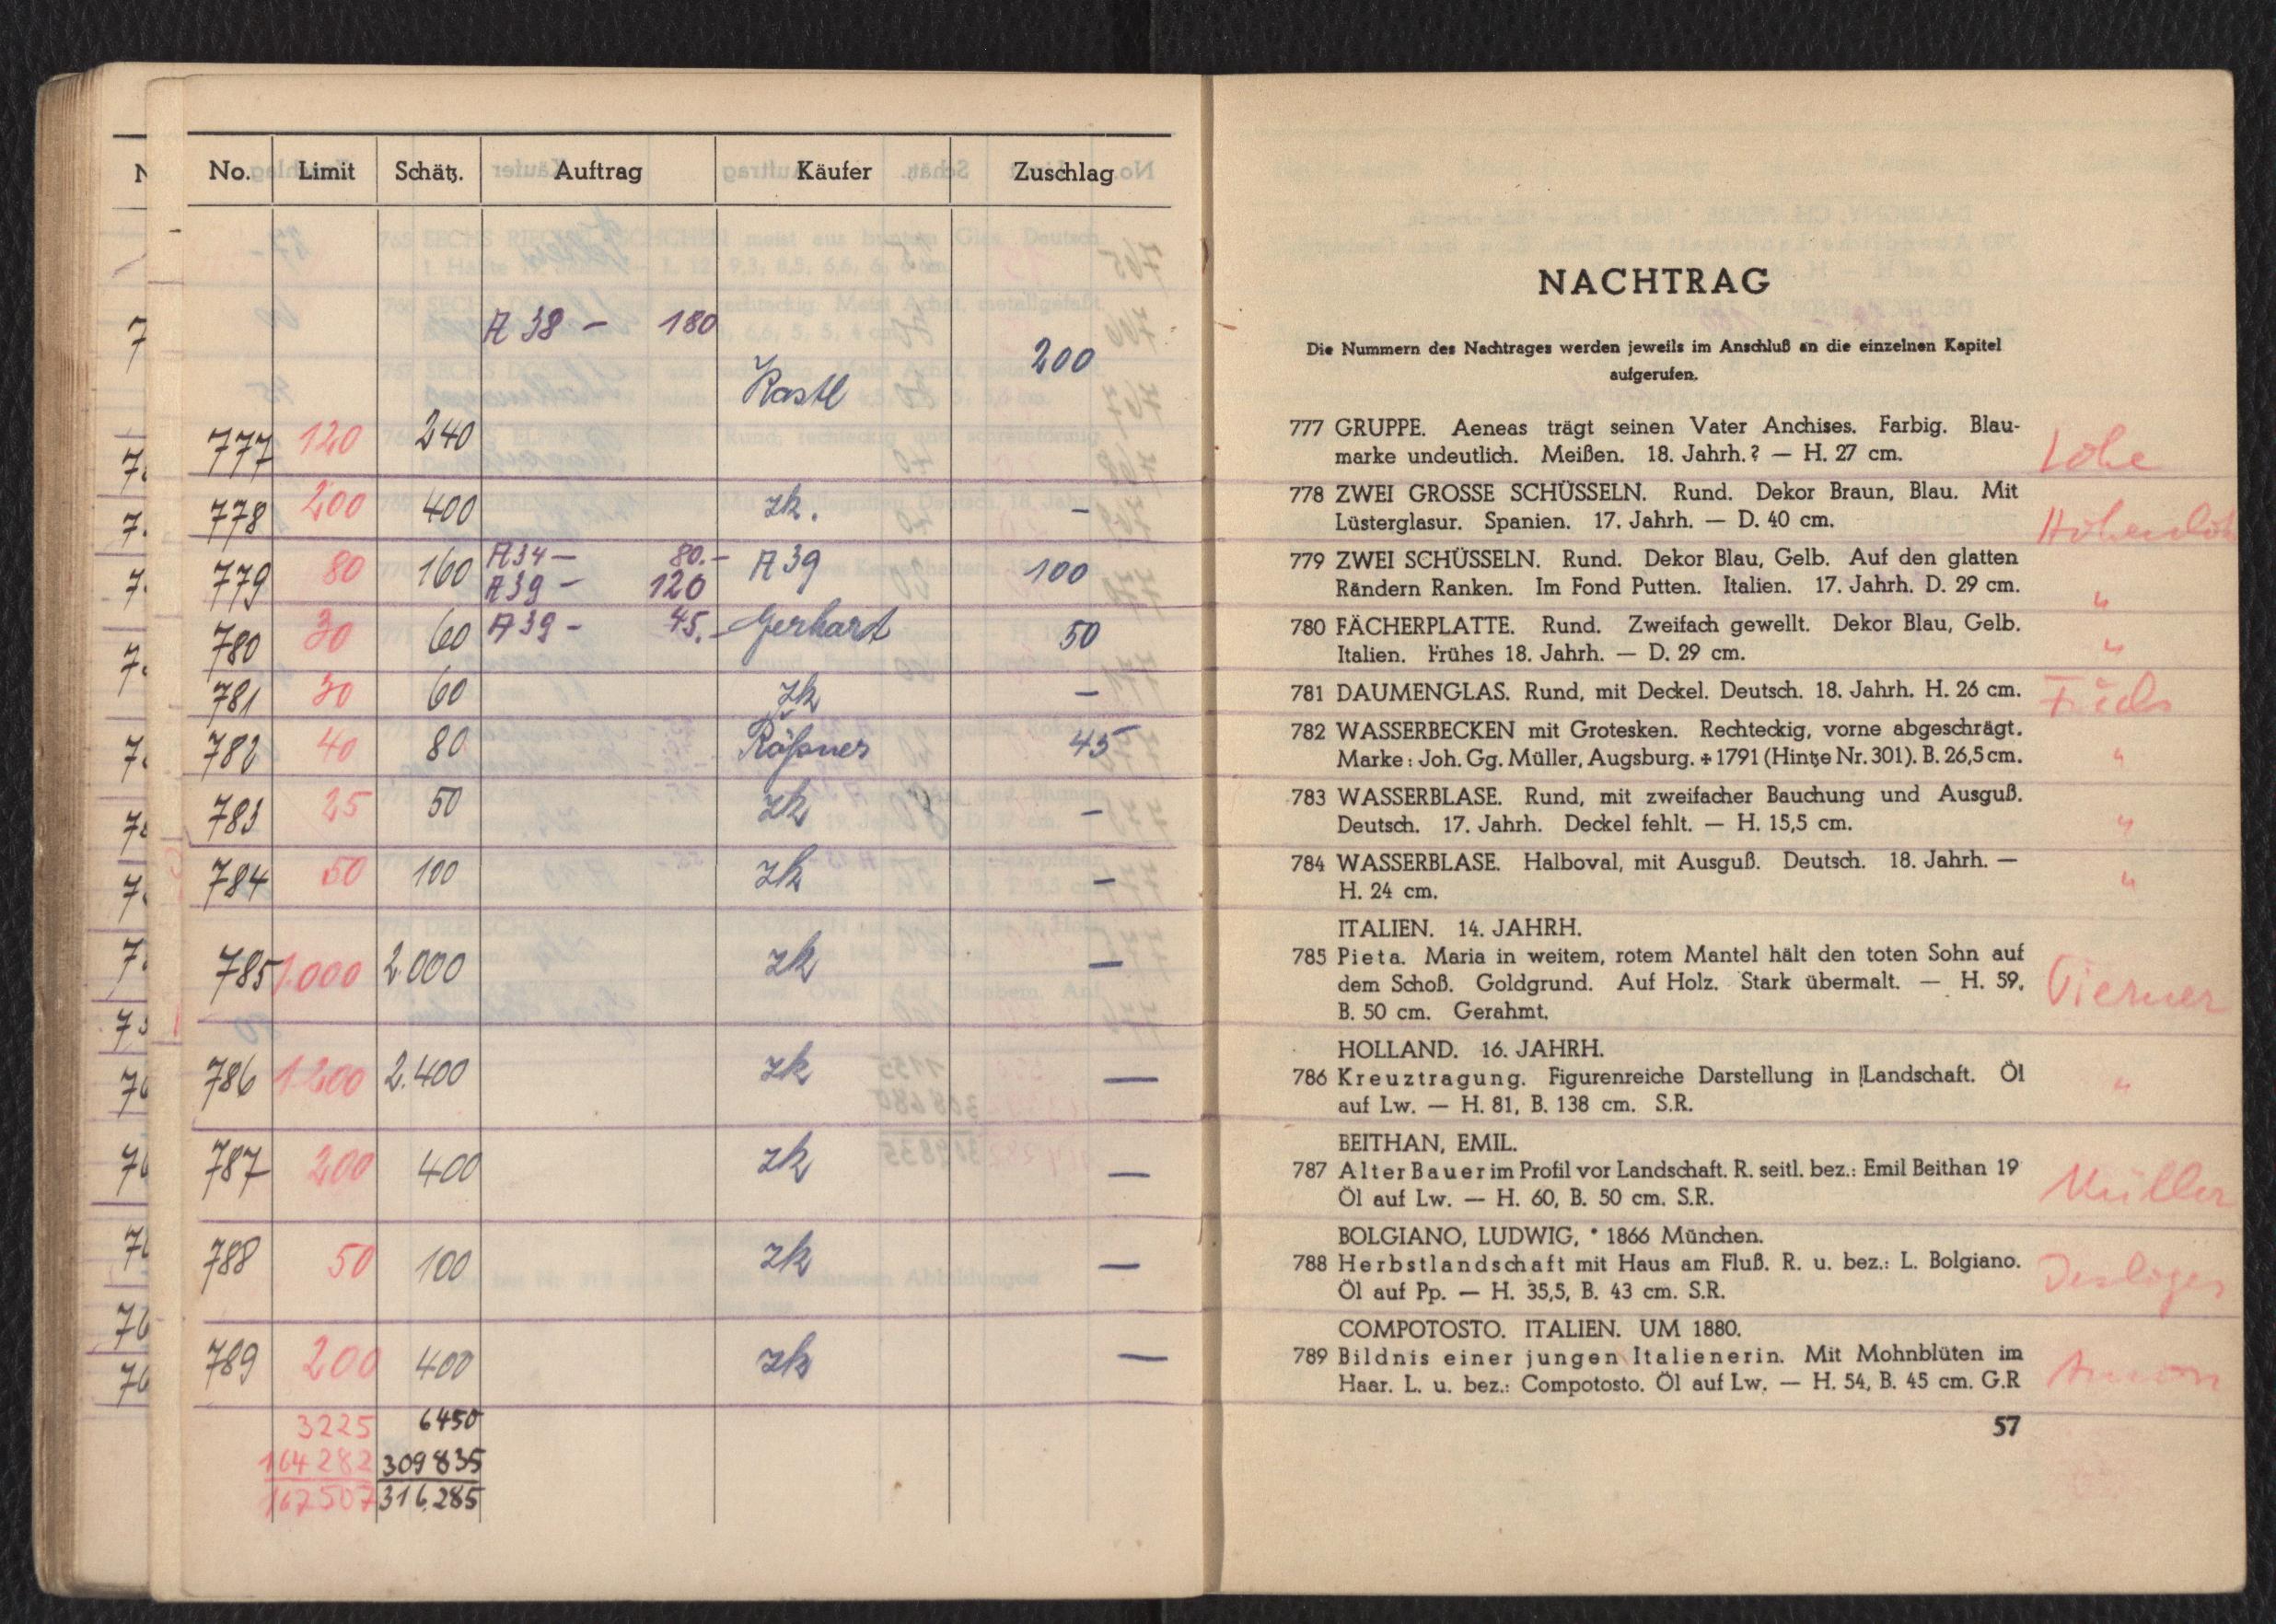 No. Limit Schätz. Auftrag Käufer Zuschlag
A 38 – 180
777 120 240 Kastl 200
778 200 400 zk. –
A 34 – 80.–
779 80 160 A 39 – 120 A 39 100
780 30 60 A 39 – 45.– Gerhart 50
781 30 60 zk –
782 40 80 Rößner 45
783 25 50 zk –
784 50 100 zk –
785 1.000 2.000 zk –
786 1200 2.400 zk –
787 200 400 zk –
788 50 100 zk –
789 200 400 zk –
3225 6450
164282 309835
167507 316.285
NACHTRAG
Die Nummern des Nachtrages werden jeweils im Anschluß an die einzelnen Kapitel
aufgerufen.
777 GRUPPE. Aeneas trägt seinen Vater Anchises. Farbig. Blau-
marke undeutlich. Meißen. 18. Jahrh.? — H. 27 cm.
778 ZWEI GROSSE SCHÜSSELN. Rund. Dekor Braun, Blau. Mit
Lüsterglasur. Spanien. 17. Jahrh. — D. 40 cm.
779 ZWEI SCHÜSSELN. Rund. Dekor Blau, Gelb. Auf den glatten
Rändern Ranken. Im Fond Putten. Italien. 17. Jahrh. D. 29 cm. "
780 FÄCHERPLATTE. Rund. Zweifach gewellt. Dekor Blau, Gelb.
Italien. Frühes 18. Jahrh. — D. 29 cm. "
781 DAUMENGLAS. Rund, mit Deckel. Deutsch. 18. Jahrh. H. 26 cm.
782 WASSERBECKEN mit Grotesken. Rechteckig, vorne abgeschrägt.
Marke: Joh. Gg. Müller, Augsburg. + 1791 (Hintze Nr. 301). B. 26,5 cm. "
783 WASSERBLASE. Rund, mit zweifacher Bauchung und Ausguß.
Deutsch. 17. Jahrh. Deckel fehlt. — H. 15,5 cm. "
784 WASSERBLASE. Halboval, mit Ausguß. Deutsch. 18. Jahrh. —
H. 24 cm. "
ITALIEN. 14. JAHRH.
785 Pieta. Maria in weitem, rotem Mantel hält den toten Sohn auf
dem Schoß. Goldgrund. Auf Holz. Stark übermalt. — H. 59,
B. 50 cm. Gerahmt.
HOLLAND. 16. JAHRH.
786 Kreuztragung. Figurenreiche Darstellung in Landschaft. Öl "
auf Lw. — H. 81, B. 138 cm. S.R.
BEITHAN, EMIL.
787 Alter Bauer im Profil vor Landschaft. R. seitl. bez.: Emil Beithan 19 Müller
Öl auf Lw. — H. 60, B. 50 cm. S.R.
BOLGIANO, LUDWIG, * 1866 München.
788 Herbstlandschaft mit Haus am Fluß. R. u. bez.: L. Bolgiano.
Öl auf Pp. — H. 35,5, B. 43 cm. S.R.
COMPOTOSTO. ITALIEN. UM 1880.
789 Bildnis einer jungen Italienerin. Mit Mohnblüten im
Haar. L. u. bez.: Compotosto. Öl auf Lw. — H. 54, B. 45 cm. G.R
57